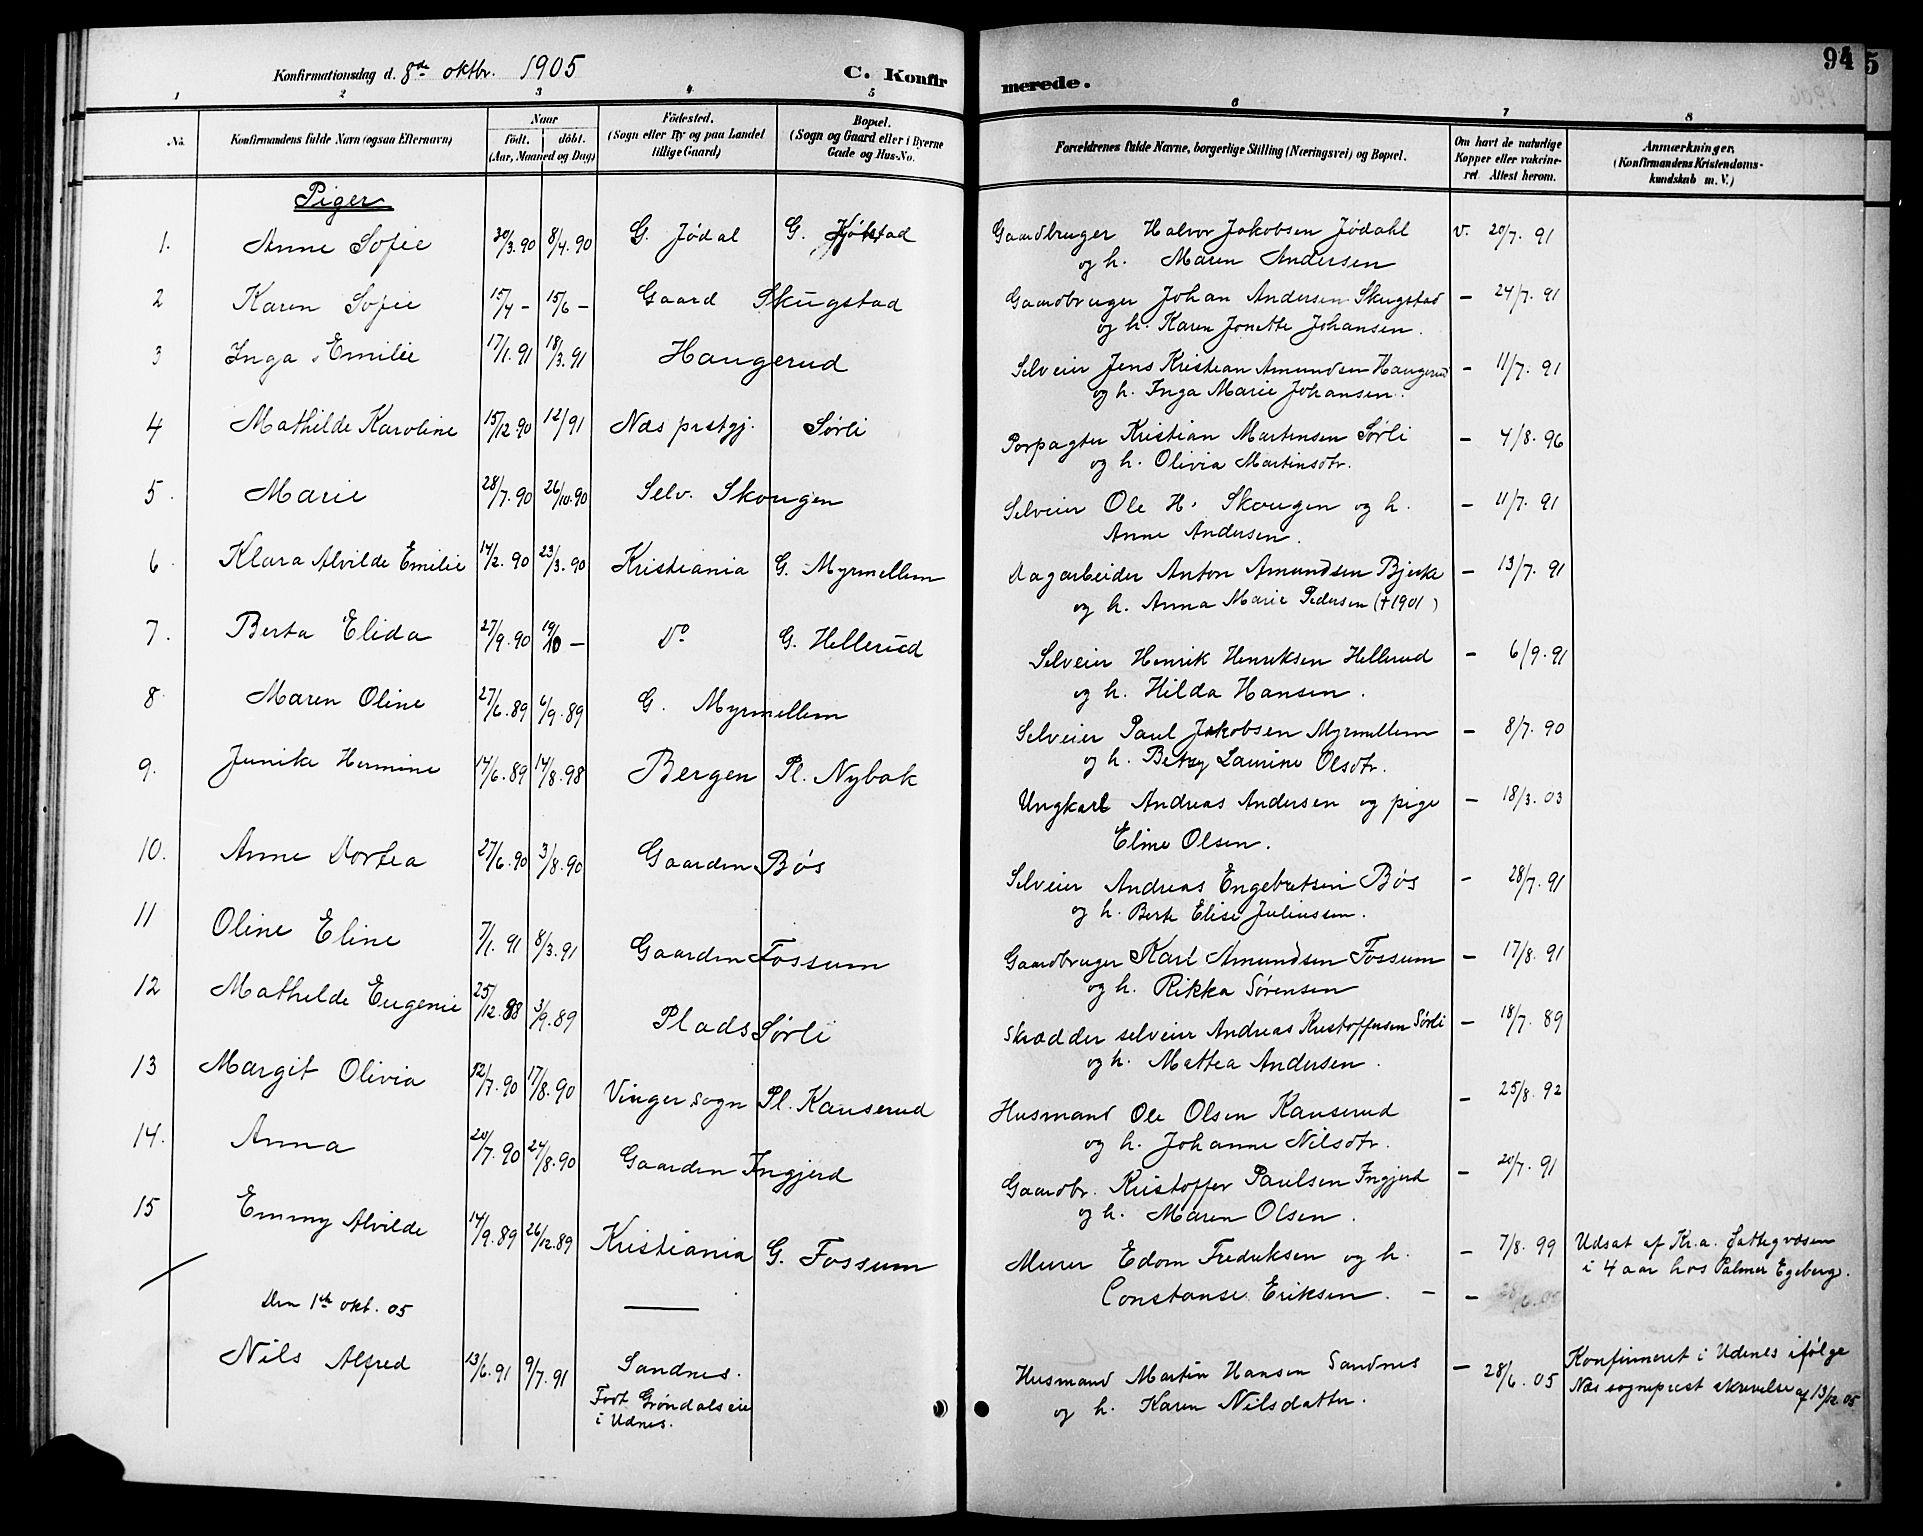 Konfirmationsdag d. 8de oktbr. 1905
C. Konfirmerede.
94 5
1 2 3 4 5 6 7 8
No.
Konfirmandens fulde Navn (ogsaa Efternavn)
Naar
födt. döbt.
(Aar, Maaned og Dag)
Födested.
(Sogn eller By og paa Landet
tillige Gaard)
Bopæl.
(Sogn og Gaard eller i Byerne
Gade og Hus-No.
Forældrenes fulde Navne, borgerlige Stilling (Næringsvei) og Bopæl.
Om havt de naturlige
Kopper eller vakcine-
ret Attest herom.
Anmærkninger.
(Konfirmandens Kristendoms-
kundskab m. V.)
Piger
1. Anne Sofie 30/3.90 8/4.90 G. Jødal G. Gaardbruger Halvor Jakobsen Jødahl v. 20/7. 91
og h. Maren Andersen
2 Karen Sofie 15/4 - 15/6 - Gaard Skugstad Gaardbruger Johan Andersen Skugstad - 24/7. 91
og h. Karen Jonette Johansen.
3 Inga Emilie 17/1.91 18/3.91 Haugerud Selveier Jens Kristian Amundsen Haugerud - 11/7. 91
og h. Inga Marie Johansen.
4 Mathilde Karoline 15/12.90 12/91 Næs prstgj. Sørli Forpagter Kristian Martinsen Sørli - 4/8. 96
og h. Olivia Martinsdtr.
5. Marie 28/7.90 26/10.90 Selv. Skougen Selveier Ole H. Skougen og h. - 11/7. 91
Anne Andersen.
6. Klara Alvilde Emilie 14/2.90 23/3.90 Kristiania G. Myrmellem Dagarbeider Anton Amundsen Bjerke - 13/7. 91
og h. Anna Marie Pedersen (+1901)
7. Berta Elida 27/9.90 19/10 - Do G. Hellerud Selveier Henrik Henriksen Hellerud - 6/9. 91
og h. Hilda Hansen.
8. Maren Oline 27/6.89 6/9.89 G. Myrmellem Selveier Paul Jakobsen Myrmellem - 8/7. 90
og h. Betzy Laurine Olsdtr.
9. Junike Hermine 17/6.89 14/8.98 Bergen Pl. Nybak Ungkarl Andreas Andersen og pige - 18/3. 03
Eline Olsen.
10. Anne Dortea 27/6.90 3/8.90 Gaarden Bøs Selveier Andreas Engebretsen Bøs - 28/7. 91
og h. Berte Elise Juliussen.
11 Oline Eline 7/1.91 8/3.91 Gaarden Fossum Gaardbruger Karl Amundsen Fossum - 17/8. 91
og h. Rikka Sørensen
12 Mathilde Eugenie 25/12.88 3/9.89 Plads Sørli Skrædder selveier Andreas Kristoffersen Sørli - 18/7. 89
og h. Mattea Andersen.
13 Margit Olivia 12/7.90 17/8.90 Vinger sogn Pl. Kauserud Husmand Ole Olsen Kauserud - 25/8. 92
og h. Johanne Nilsdtr.
14. Anna 20/7.90 24/8.90 Gaarden Ingjerd Gaardbr. Kristoffer Paulsen Ingjerd - 20/7. 91
og h. Maren Olsen.
15 Emmy Alvilde 14/9.89 26/12.89 Kristiania G. Fossum Murer Edom Fredriksen og h. - 7/8. 99 Udsat af Kr.a. fattigvæsen
Constanse Eriksen. - - i 4 aar hos Palmer Egeberg.
Den 1ste okt. 05
Nils Alfred 13/6.91 9/7.91 Sandnes. Husmand Martin Hansen Sandnes - 28/6. 05 Konfirmeret i Udenes ifølge
Født Grøndalseie og h. Karen Nilsdatter. Næs sogneprest skrivelse af 13/12.05
i Udnes.